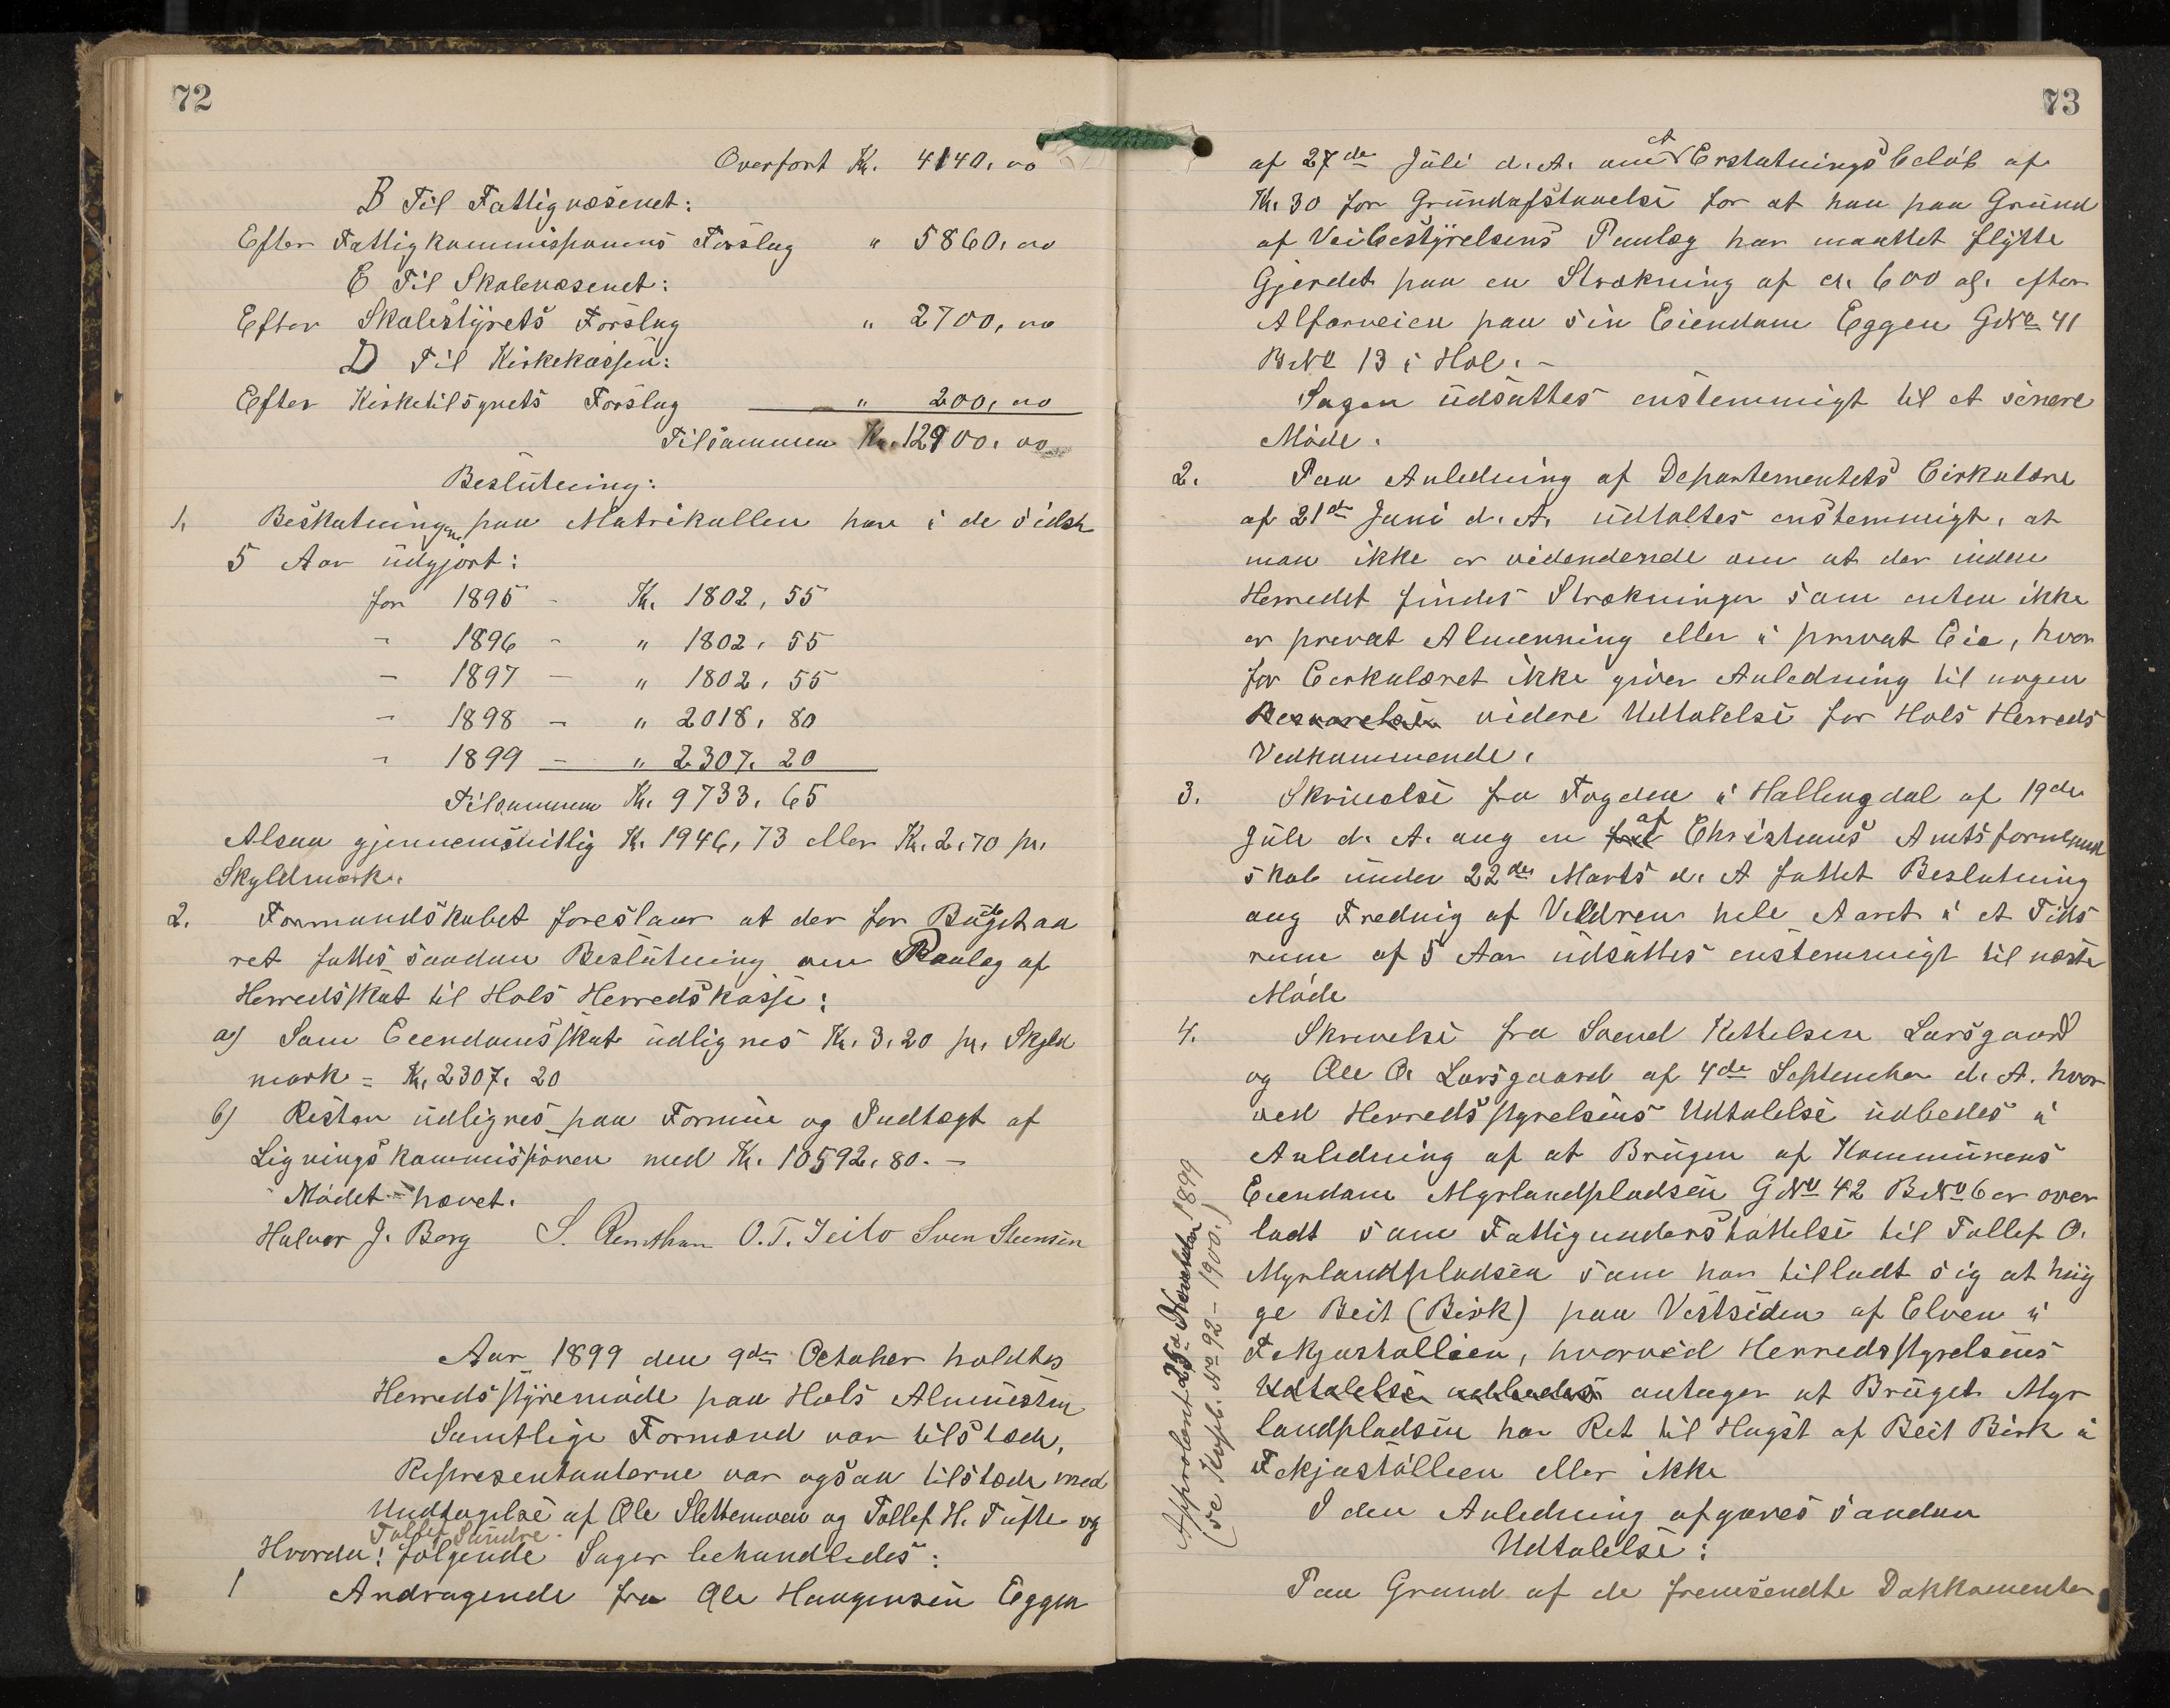 72
Overført Kr. 4140,00
B Til Fattigvæsenet:
Efter Fattigkommissionens Forslag " 5860,00
C Til Skolevæsenet:
Efter Skolestyrets Forslag " 2700,00
D Til Kirkekassen:
Efter Kirketilsynets Forslag " 200,00
Tilsammen Kr. 12900.00
Beslutning:
1. Beskatningen paa Matrikullen har i de sidste
5 Aar udgjort:
for 1895 - Kr. 1802,55
- 1896 - " 1802,55
- 1897 - " 1802,55
- 1898 - " 2018,80
- 1899 - " 2307.20
Tilsammen Kr. 9733,65
Alsaa gjennemsnitlig Kr. 1946,73 eller Kr. 2,70 pr.
Skyldmark.
2. Formandskabet foreslaar at der for Budgetaa
ret fattes saadan Beslutning om Paalæg af
Herredsskat til Hols Herredskasse:
a) Som Eiendomsskat udlignes Kr. 3.20 pr. Skyld
mark = Kr. 2307.20
b) Resten udlignes paa Formue og Indtægt af
Ligningskommissionen med Kr. 10592.80. -
Mødet hævet.
Halvor J. Berg S. O. T. Jeilo Sven Steensen
Aar 1899 den 9de October holdtes
Herredsstyremøde paa Hols Almuestue
Samtlige Formænd var tilstæde,
Representanterne var ogsaa tilstæde med
Undtagelse af Ole Slettemoen og Tollef H. Tufte og
Tollef Sundre.
Hvorda! følgende Sager behandledes:
1 Andragende fra Ole Haugensen Eggen
73
af 27de Juli d. A. om et Erstatningsbeløb af
Kr. 30 for Grundafstaaelse for at han paa Grund
af Veibestyrelsens Paalæg har maattet flytte
Gjerdet paa en Strækning af ca. 600 al. efter
Alfarveien paa sin Eiendom Eggen GNo 41
BNo 13 i Hol. -
Sagen udsattes enstemmigt til et senere
Møde.
2. Paa Anledning af Departementets Cirkulære
af 21de Juni d. A. udtaltes enstemmigt, at
man ikke er videndende om at der inden
Herredet findes Strækninger som enten ikke
er prevat Almenning eller i privat Eie, hvor
for Cirkulæret ikke giver Anledning til nogen
Besvarelse videre Udtalelse for Hols Herreds
Vedkommende.
3. Skrivelse fra Fogden i Hallingdal af 19de
Juli d. A. ang en fra af Christians Amtsformand
skab under 22de Marts d. A fattet Beslutning
ang Frednig af Vildren hele Aaret i et Tids
rum af 5 Aar udsattes enstemmigt til næste
Møde
4. Skrivelse fra Svend Kettelsen Larsgaard
og Ole O. Larsgaard af 4de September d. A. hvor
ved Herredsstyrelsens Udtalelse udbedes i
Anledning af at Brugen af Kommunens
Eiendom Myrlandpladsen GNo 42 BNo 6 er over
ladt som Fattigunderstøttelse til Tollef O.
Myrlandpladsen som har tilladt sig at hug
ge Beit (Birk) paa Vestsiden af Elven i
Fekjastøllien, hvorved Herredsstyrelsens
Udtalelse udbedes antager at Bruget Myr
landpladsen har Ret til Hugst af Beit Birk i
Fekjastøllien eller ikke
I den Anledning afgaves saadan
Udtalelse:
Paa Grund af de fremsendte Dokkomenter
Approbert 25de November 1899
(se Kopb. No 92 - 1900.)